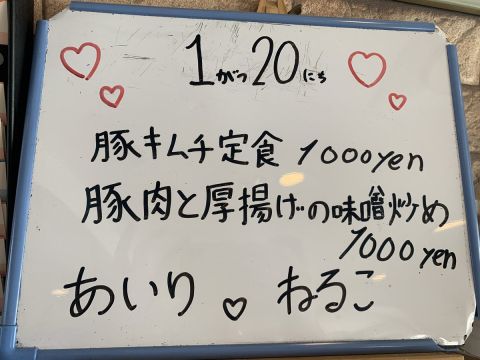 1がつ20にち
豚キムチ定食 1000yen
豚肉と厚揚げの味噌炒め
1000yen
あいり♡ねるこ